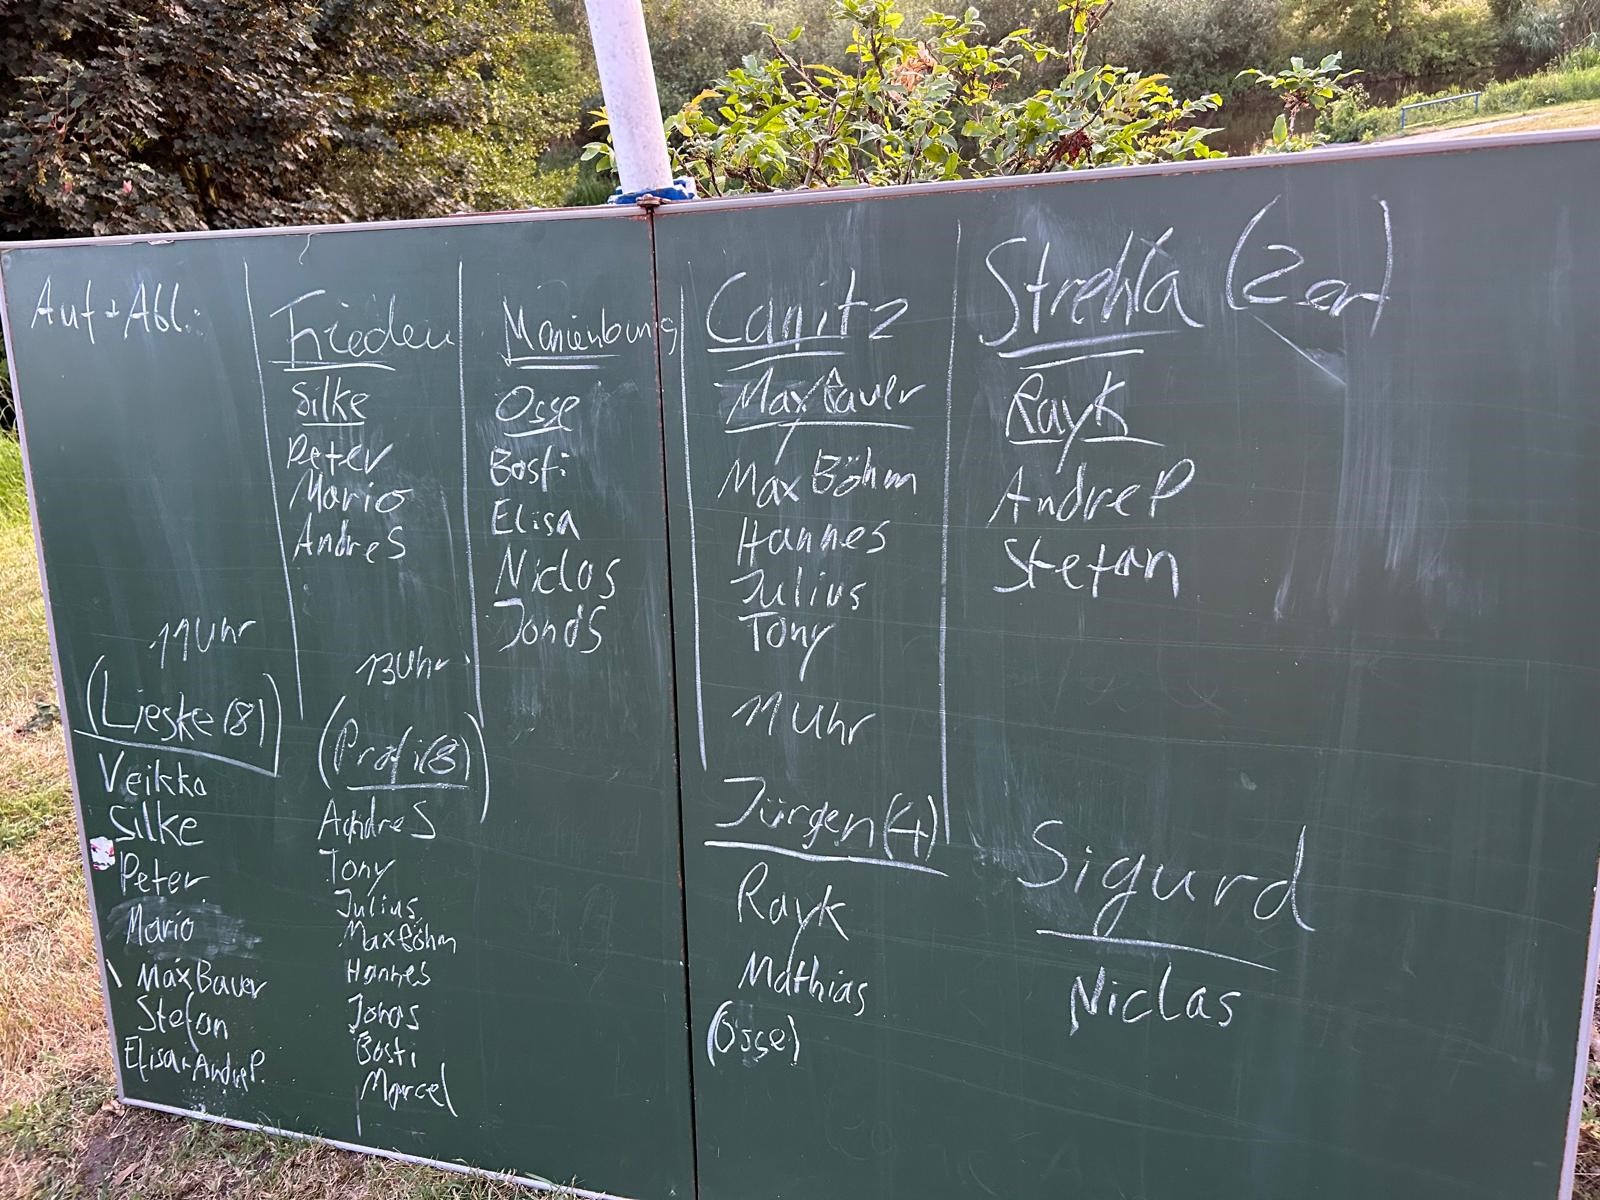 Auf + Abl.:
Frieden
Silke
Peter
Mario
Andre S
Marienburg
Osse
Basti
Elisa
Niclas
Jonas
Canitz
Max Bauer
Max Böhm
Hannes
Julius
Tony
Strehla (2er)
Rayk
Andre P
Stefan
11 Uhr
(Lieske (8))
Veikko
Silke
Peter
Mario
Max Bauer
Stefan
Elisa + Andre P.
13 Uhr
(Profi (8))
Andre S
Tony
Julius
Max Böhm
Hannes
Jonas
Basti
Marcel
11 Uhr
Jürgen (4)
Rayk
Mathias
(Osse)
Sigurd
Niclas